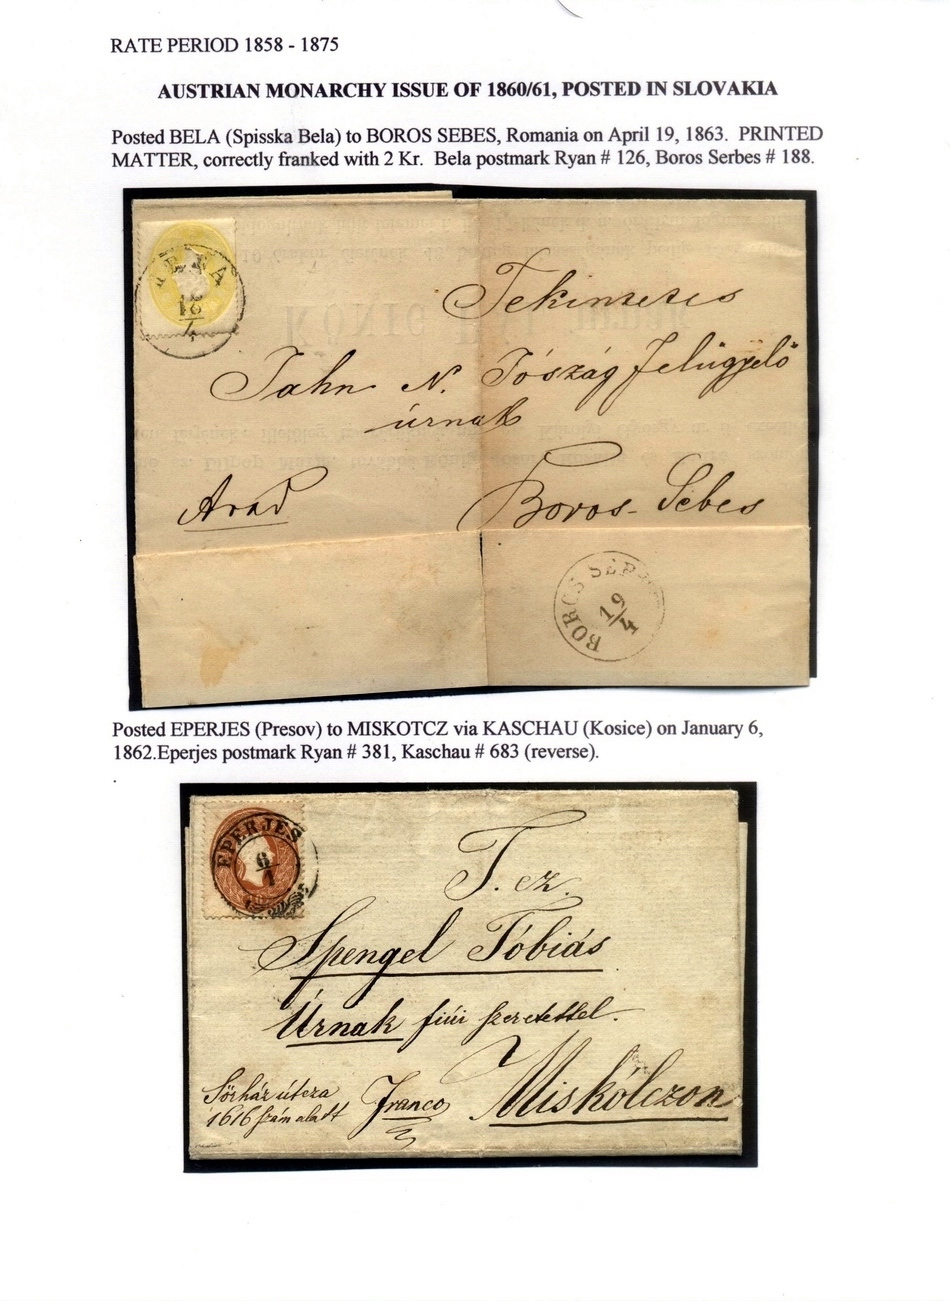 RATE PERIOD 1858 - 1875
AUSTRIAN MONARCHY ISSUE OF 1860/61, POSTED IN SLOVAKIA
Posted BELA (Spisska Bela) to BOROS SEBES, Romania on April 19, 1863. PRINTED
MATTER, correctly franked with 2 Kr. Bela postmark Ryan # 126, Boros Serbes # 188.
BELA
15
4
Tekintetes
Jahn N. Jószág felügyelő
úrnak
Arad
Boros-Sebes
BOROS SEBES
19/4
Posted EPERJES (Presov) to MISKOTCZ via KASCHAU (Kosice) on January 6,
1862.Eperjes postmark Ryan # 381, Kaschau # 683 (reverse).
EPERJES
6
1
T. cz.
Spengel Tóbiás
Úrnak fiúi szeretettel.
Miskólczon
Franco
Sörház útcza
1616 szám alatt